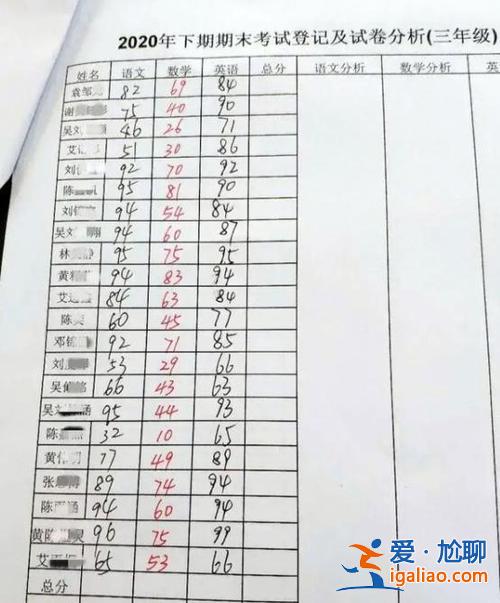 2020年下期期末考试登记及试卷分析(三年级)
姓名 语文 数学 英语 总分 语文分析 数学分析 英
袁邹 82 69 84
谢 75 40 90
吴刘 46 26 71
艾 51 30 86
刘 92 70 92
陈 95 81 90
刘 94 54 84
吴刘 94 60 87
林 95 75 95
黄 94 83 94
艾 84 63 84
陈 60 45 77
邓 92 71 85
刘 53 29 66
吴 66 43 63
吴刘 涵 95 44 93
陈 32 10 65
黄 77 49 89
张 89 74 94
陈 涵 94 60 94
黄陈 灵 96 75 99
艾 65 53 66
总分
爱·尬聊
igaliao.com